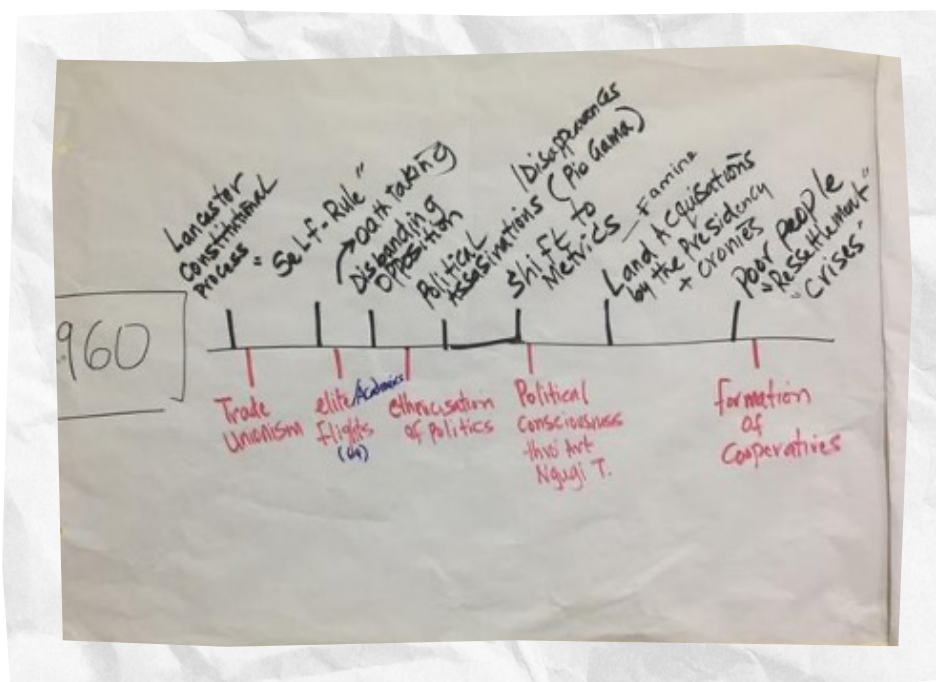 960
Lancaster
Constitutional
process =
Self-Rule"
oath taking
Disbanding
Opposition
Political
Assasinations
/Disappearances
(Pio Gama)
Shift to
Metrics
– Famine
Land Acquisations
by the Presidency
+ cronies
Poor people
"Ressettlement"
"Crises"
Trade
Unionism
elite/Academics
flights
ethnicisation
of Politics
Political
Consciousness
-thro' Art
Ngugi T.
formation
of
Cooperatives